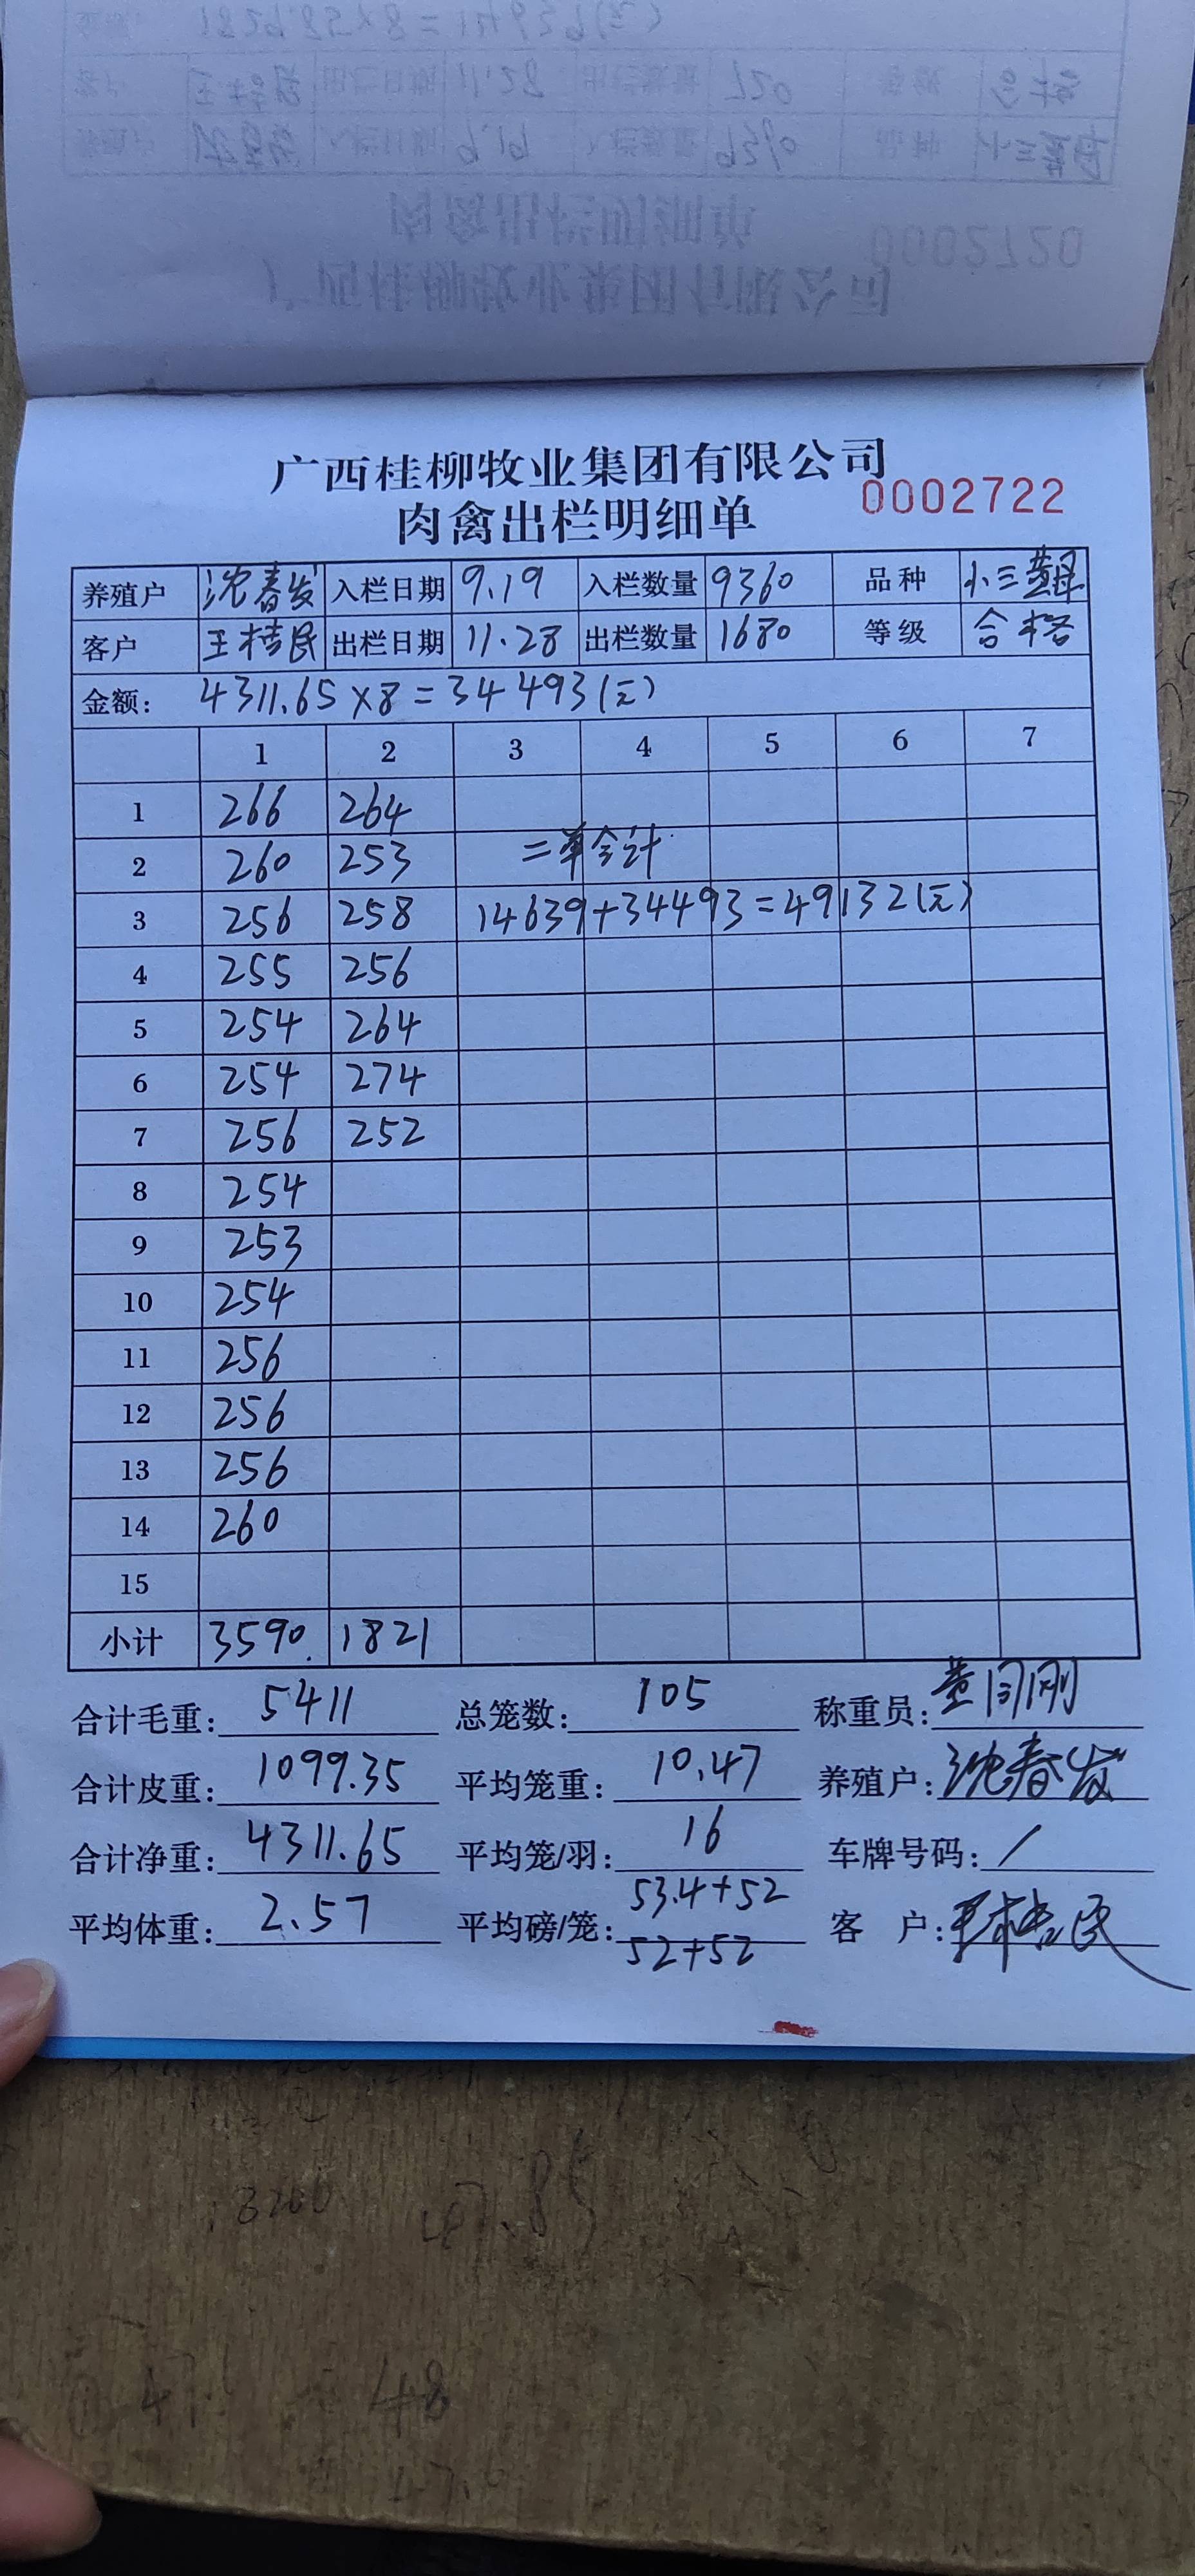 广西桂柳牧业集团有限公司
肉禽出栏明细单 0002722
养殖户 沈春发 入栏日期 9.19 入栏数量 9360 品种 小三黄
客户 王桔民 出栏日期 11.28 出栏数量 1680 等级 合格
金额: 4311.65×8=34493(元)
1 2 3 4 5 6 7
1 266 264
2 260 253 二单合计
3 256 258 14639+34493=49132(元)
4 255 256
5 254 264
6 254 274
7 256 252
8 254
9 253
10 254
11 256
12 256
13 256
14 260
15
小计 3590. 1821
合计毛重: 5411 总笼数: 105 称重员:
合计皮重: 1099.35 平均笼重: 10.47 养殖户: 沈春发
合计净重: 4311.65 平均笼/羽: 16 车牌号码: /
平均体重: 2.57 平均磅/笼: 53.4+52 客 户: 王桔民
52+52